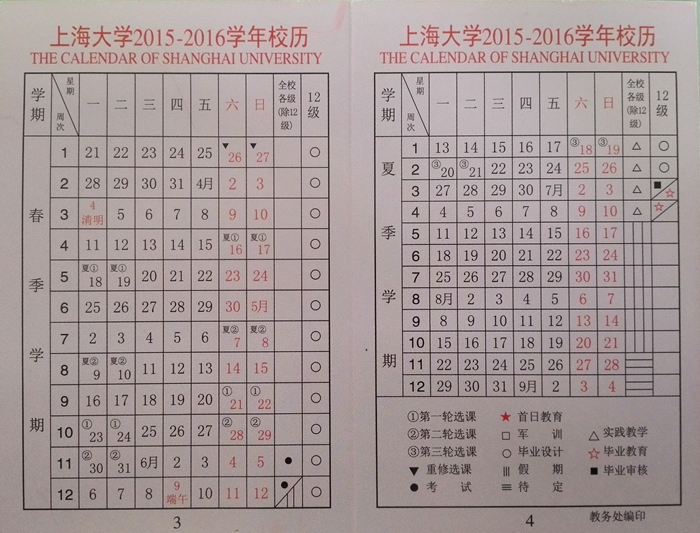 上海大学2015-2016学年校历
THE CALENDAR OF SHANGHAI UNIVERSITY
学期 星期 周次 一 二 三 四 五 六 日 全校各级(除12级) 12级
春季学期
1 21 22 23 24 25 ▼26 ▼27 ○
2 28 29 30 31 4月 2 3 ○
3 4清明 5 6 7 8 9 10 ○
4 11 12 13 14 15 夏①16 夏①17 ○
5 夏①18 夏①19 20 21 22 23 24 ○
6 25 26 27 28 29 30 5月 ○
7 2 3 4 5 6 夏②7 夏②8 ○
8 夏②9 夏②10 11 12 13 14 15 ○
9 16 17 18 19 20 ①21 ①22 ○
10 ①23 ①24 25 26 27 ②28 ②29 ○
11 ②30 ②31 6月 2 3 4 5 ● ○
12 6 7 8 9端午 10 11 12 ● ○
3
上海大学2015-2016学年校历
THE CALENDAR OF SHANGHAI UNIVERSITY
学期 星期 周次 一 二 三 四 五 六 日 全校各级(除12级) 12级
夏季学期
1 13 14 15 16 17 ③18 ③19 △ ○
2 ③20 ③21 22 23 24 25 26 △ ○
3 27 28 29 30 7月 2 3 △ ■ ☆
4 4 5 6 7 8 9 10 △ ☆
5 11 12 13 14 15 16 17
6 18 19 20 21 22 23 24
7 25 26 27 28 29 30 31
8 8月 2 3 4 5 6 7
9 8 9 10 11 12 13 14
10 15 16 17 18 19 20 21
11 22 23 24 25 26 27 28
12 29 30 31 9月 2 3 4
①第一轮选课 ★首日教育
②第二轮选课 □军 训 △实践教学
③第三轮选课 ○毕业设计 ☆毕业教育
▼重修选课 |||假 期 ■毕业审核
●考 试 ≡待 定
4 教务处编印